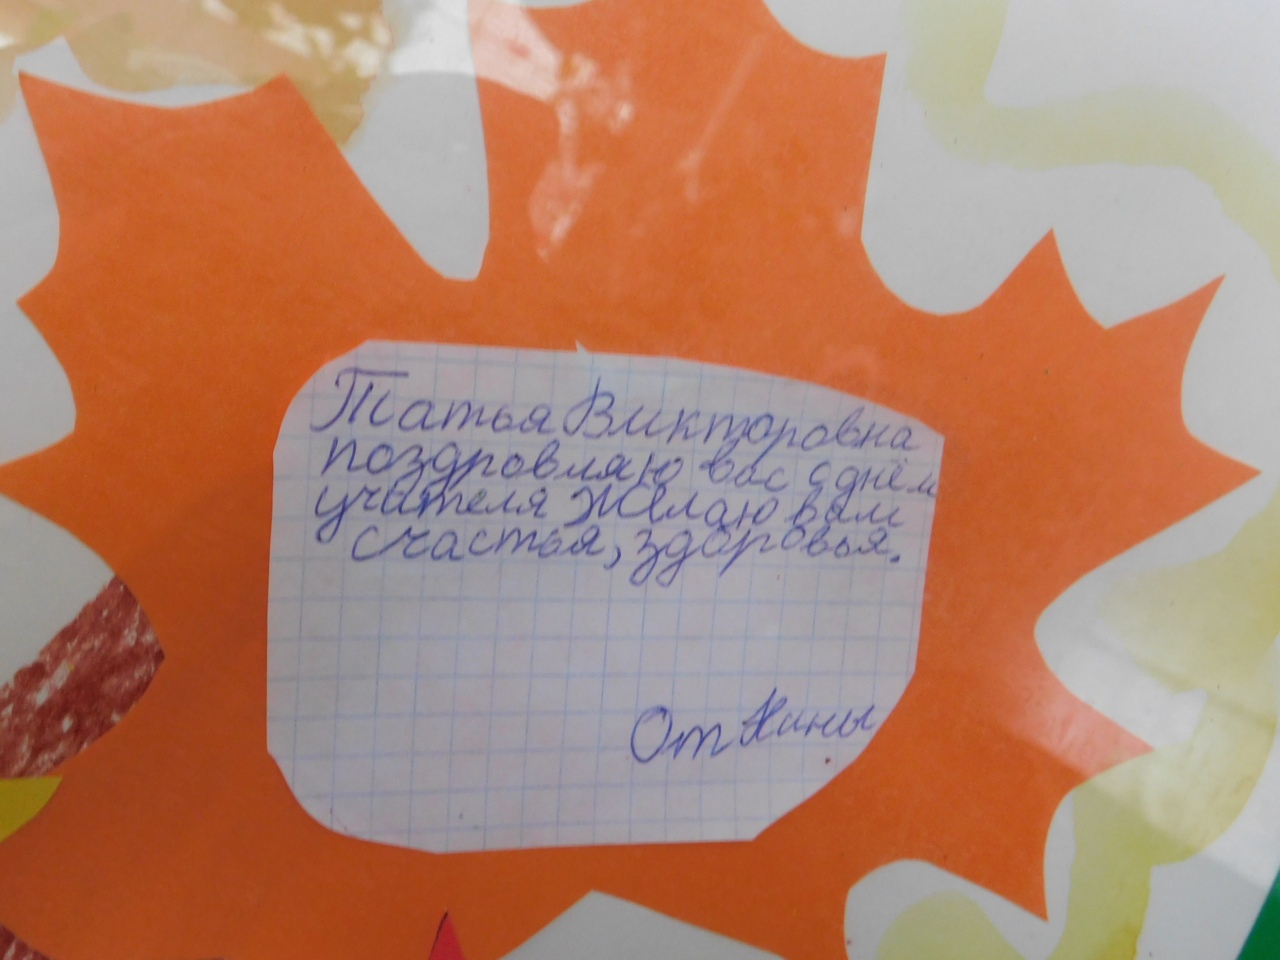 Татья Викторовна
поздровляю вас с днём
учителя Желаю вам
счастья, здоровья.
От Нины